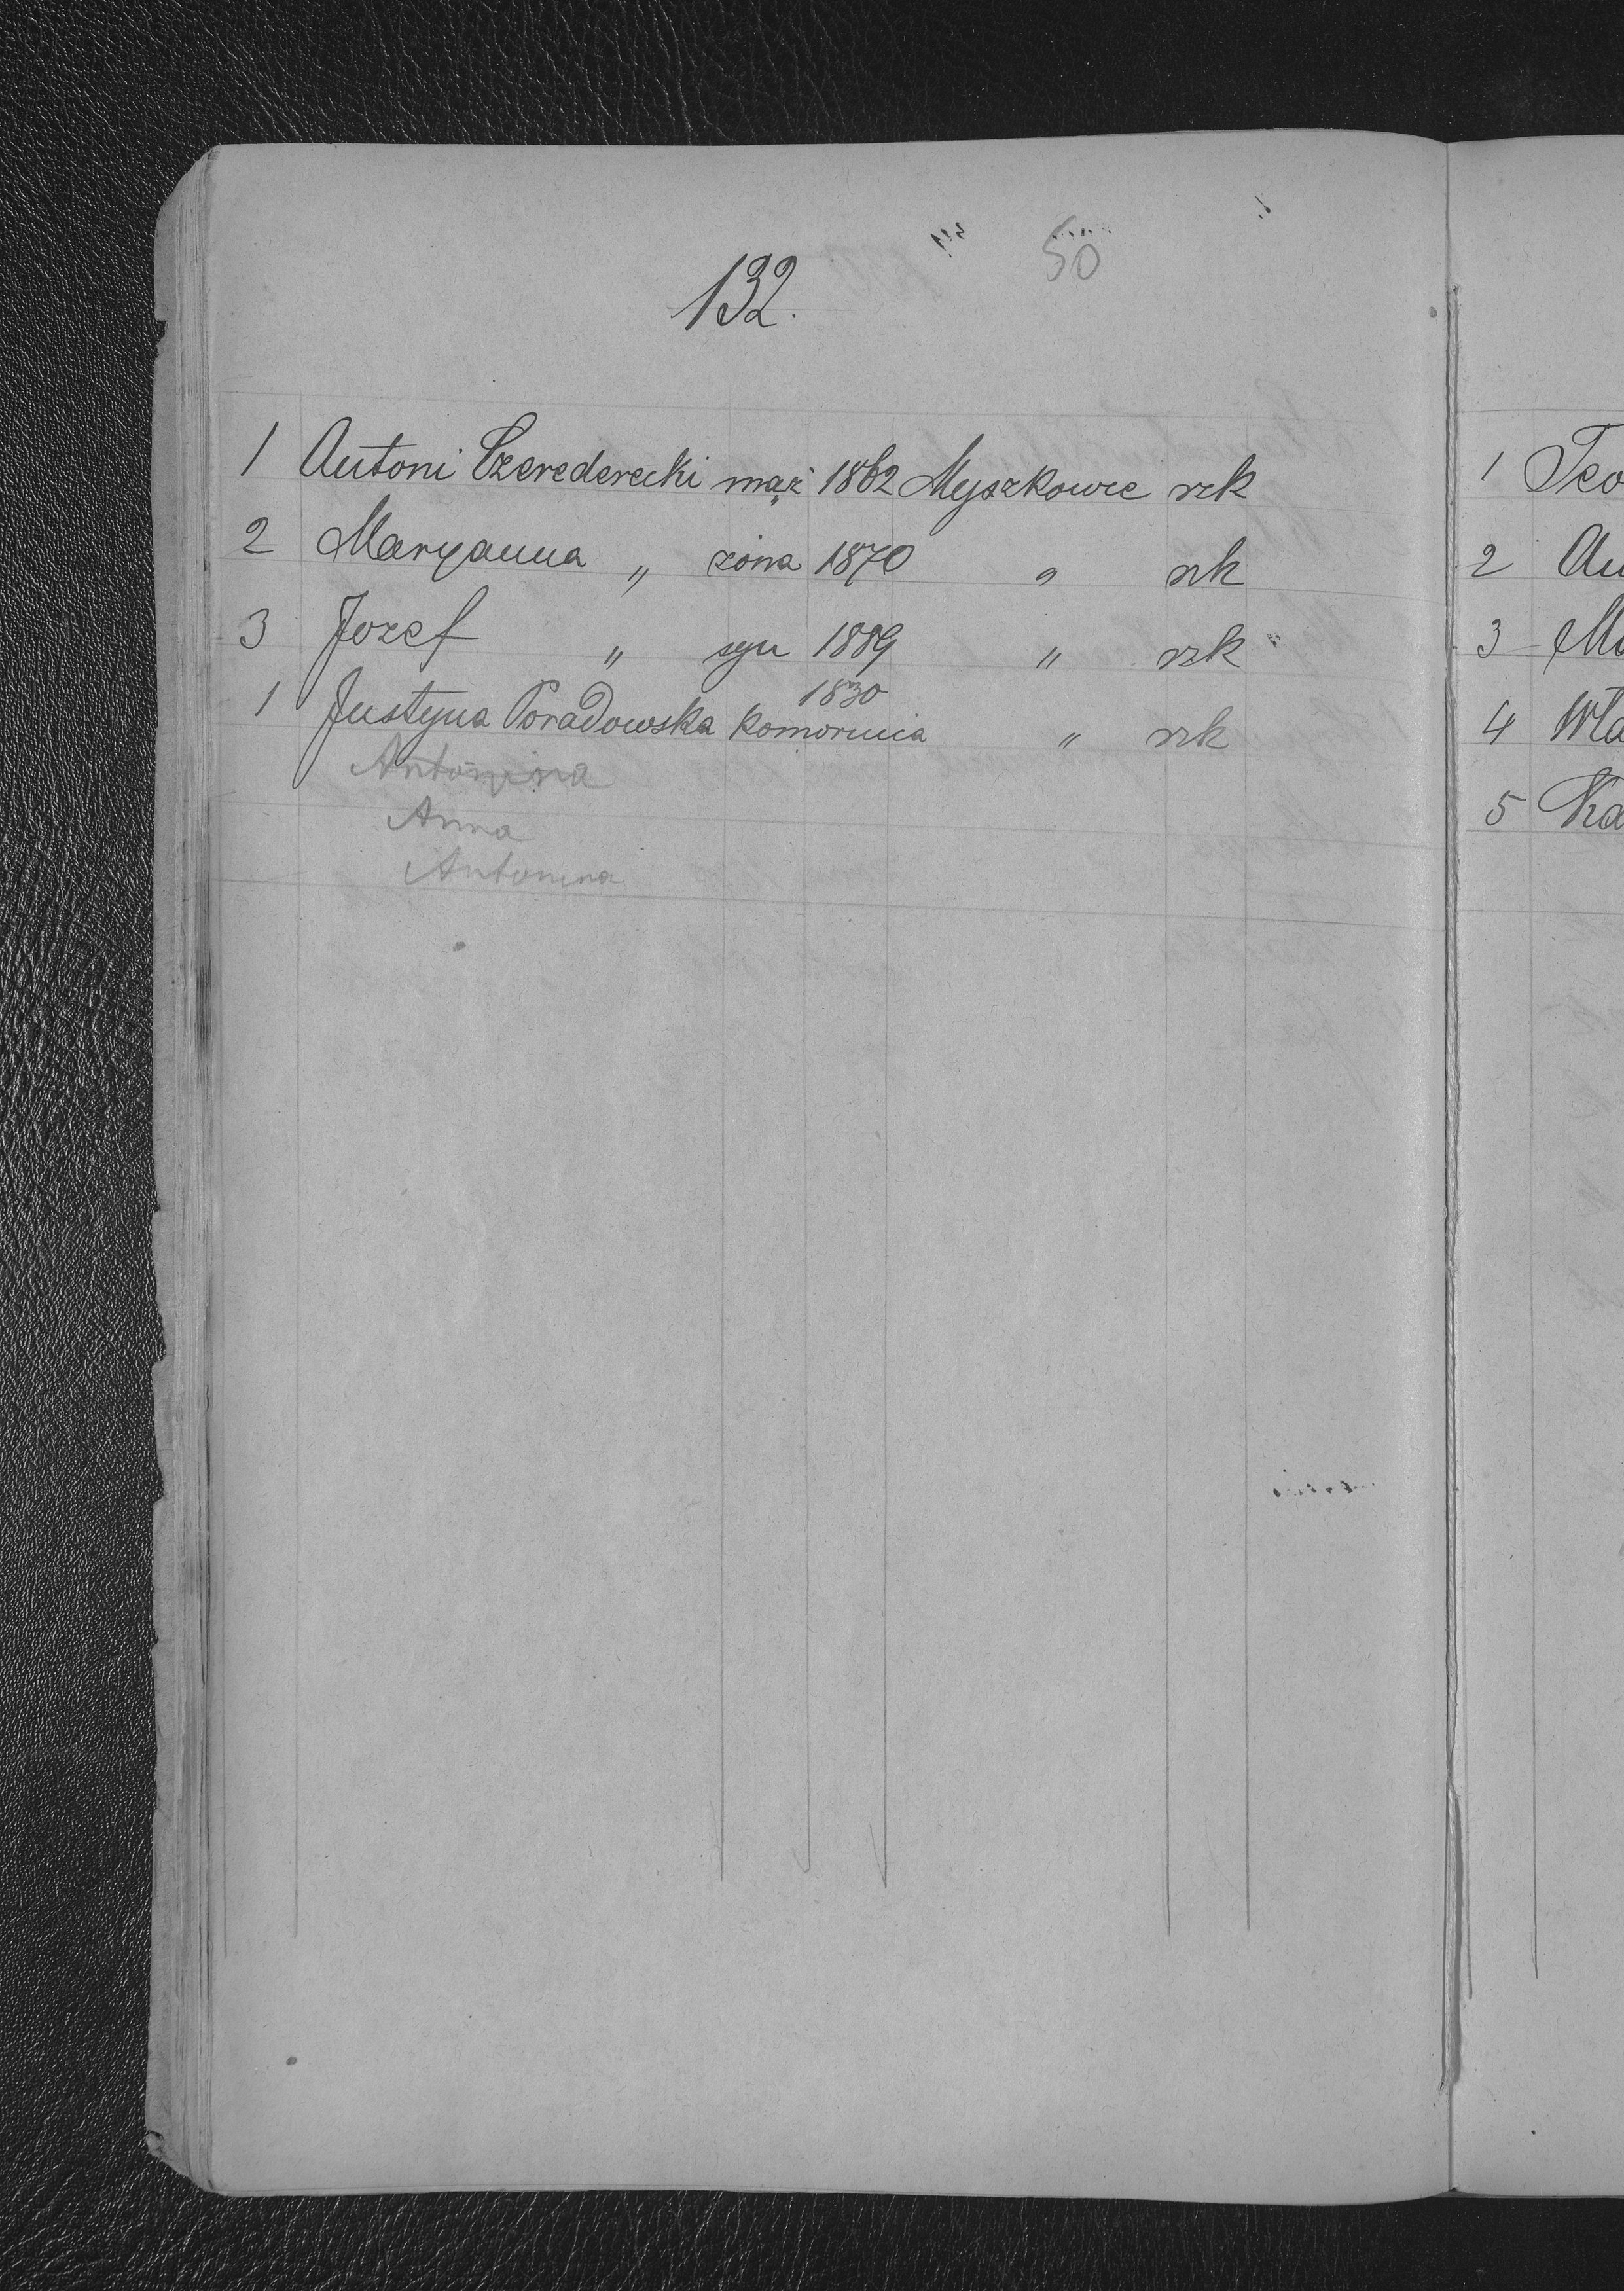 50
132.
1 Antoni Czerederecki mąż 1862 Myszkowce rzk
2 Maryanna " żona 1870 " rzk
3 Jozef " syn 1889 " rzk
1830
1 Justyna Poradowska Komornica " rzk
Antonina
Anna
Antonina
1
2
3
4
5